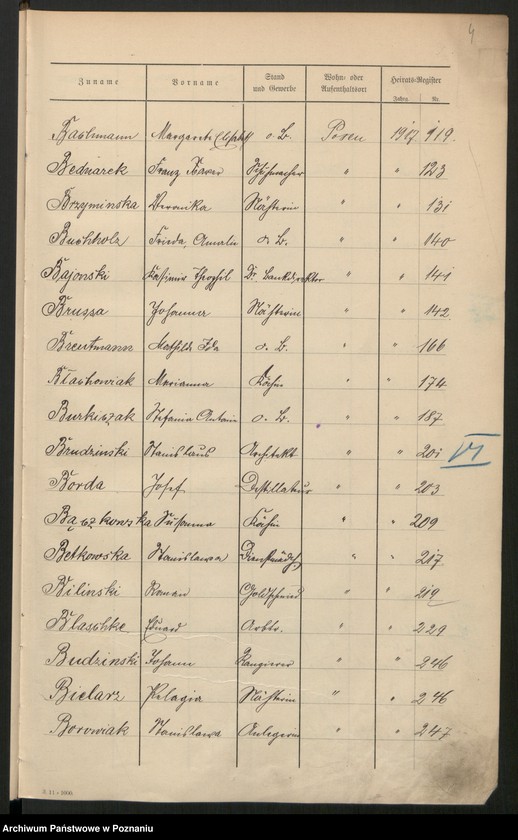 4
Zuname Vorname Stand und Gewerbe Wohn- oder Aufenthaltsort Heirats-Register
Jahrg. Nr.
Bachmann Margarete o. B. Posen 1917 119.
Bednarek Franz Xaver Schuhmacher " " 123
Brzyminska Veronika Näherin " " 131
Buchholz Frieda, Amalie o. B. " " 140
Bajonski Kasimir Theophil Dr. Bankdirektor " " 141
Brussa Johanna Näherin " " 142.
Breutmann Mathilde Ida o. B. " " 166
Błachowiak Marianna Köchin " " 174
Burkiczak Stefania Antonie o. B. " " 187
Brudzinski Stanislaus Architekt " " 201
VI
Borda Josef Destillateur " " 203
Bączkowska Susanna Köchin " " 209
Betkowska Stanislawa Dienstmädch. " " 217.
Bilinski Roman Goldschmied " " 219
Blaschke Eduard Arbtr. " " 229
Budzinski Johann Rangierer " " 246
Bielarz Pelagia Näherin " " 246
Borowiak Stanislawa Anlegerin " " 247.
Z. 11 • 1000.
Archiwum Państwowe w Poznaniu